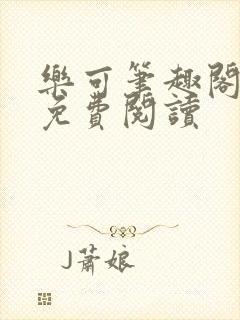 樂可筆趣閣
免費閱讀
J蕭娘